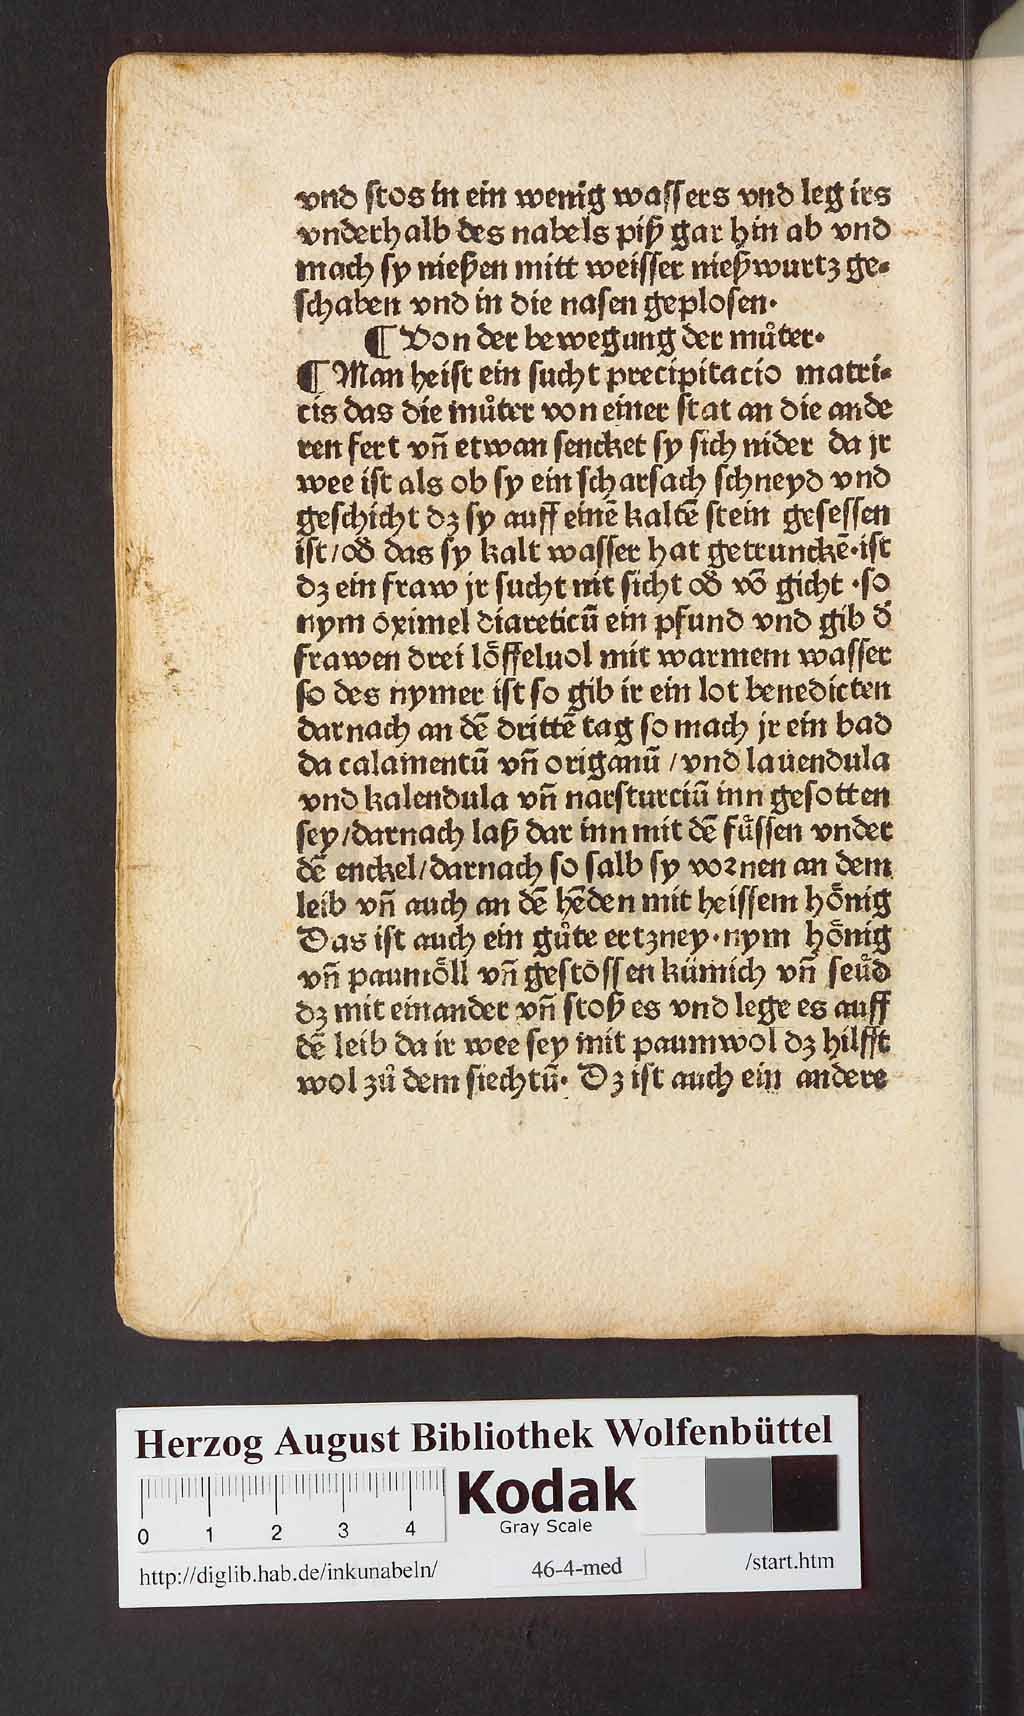 vnd stos in ein wenig wassers vnd leg irs
vnderhalb des nabels piß gar hin ab vnd
mach sy nießen mitt weisser nießwurtz ge⸗
schaben vnd in die nasen geplosen.
¶ Von der bewegung der můter.
¶ Man heist ein sucht precipitacio matri⸗
cis das die můter von einer stat an die ande
ren fert vñ etwan sencket sy sich nider da jr
wee ist als ob sy ein scharsach schneyd vnd
geschicht dz sy auff einē kaltē stein gesessen
ist/od̕ das sy kalt wasser hat getrunckē·ist
dz ein fraw jr sucht nit sicht od̕ vō gicht ·so
nym oximel diareticū ein pfund vnd gib d̕
frawen drei löffeluol mit warmem wasser
so des nymer ist so gib ir ein lot benedicten
darnach an dē drittē tag so mach jr ein bad
da calamentū vñ origanū /vnd lauendula
vnd kalendula vñ narsturciū inn gesotten
sey/darnach laß dar inn mit dē füssen vnder
dē enckel/darnach so salb sy voꝛnen an dem
leib vñ auch an dē hēden mit heissem hönig
Das ist auch ein gůte ertzney·nym hönig
vñ paumöll vñ gestossen kümich vñ seüd
dz mit einander vñ stoß es vnd lege es auff
dē leib da ir wee sey mit paumwol dz hilfft
wol zů dem siechtū· Dz ist auch ein andere
Herzog August Bibliothek Wolfenbüttel
Kodak
Gray Scale
0 1 2 3 4
http://diglib.hab.de/inkunabeln/ 46-4-med /start.htm